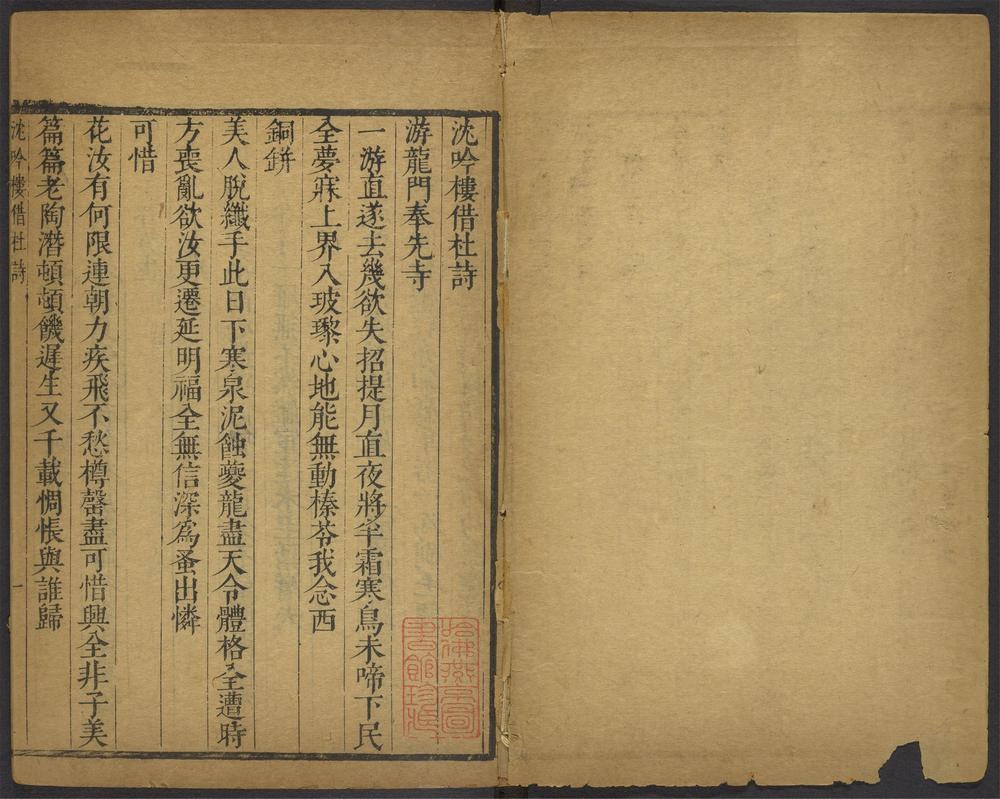 沈吟樓借杜詩
游龍門奉先寺
一游直遂去幾欲失招提月直夜將半霜寒鳥未啼下民
全夢寐上界入玻瓈心地能無動榛苓我念西
銅缾
美人脫纖手此日下寒泉泥蝕夔龍盡天令體格全遭時
方喪亂欲汝更遷延明福全無信深爲蚤出憐
可惜
花汝有何限連朝力疾飛不愁樽罄盡可惜興全非子美
篇篇老陶潛頓頓饑遲生又千載惆悵與誰歸
沈吟樓借杜詩
一
哈佛燕京圖
書館珍藏